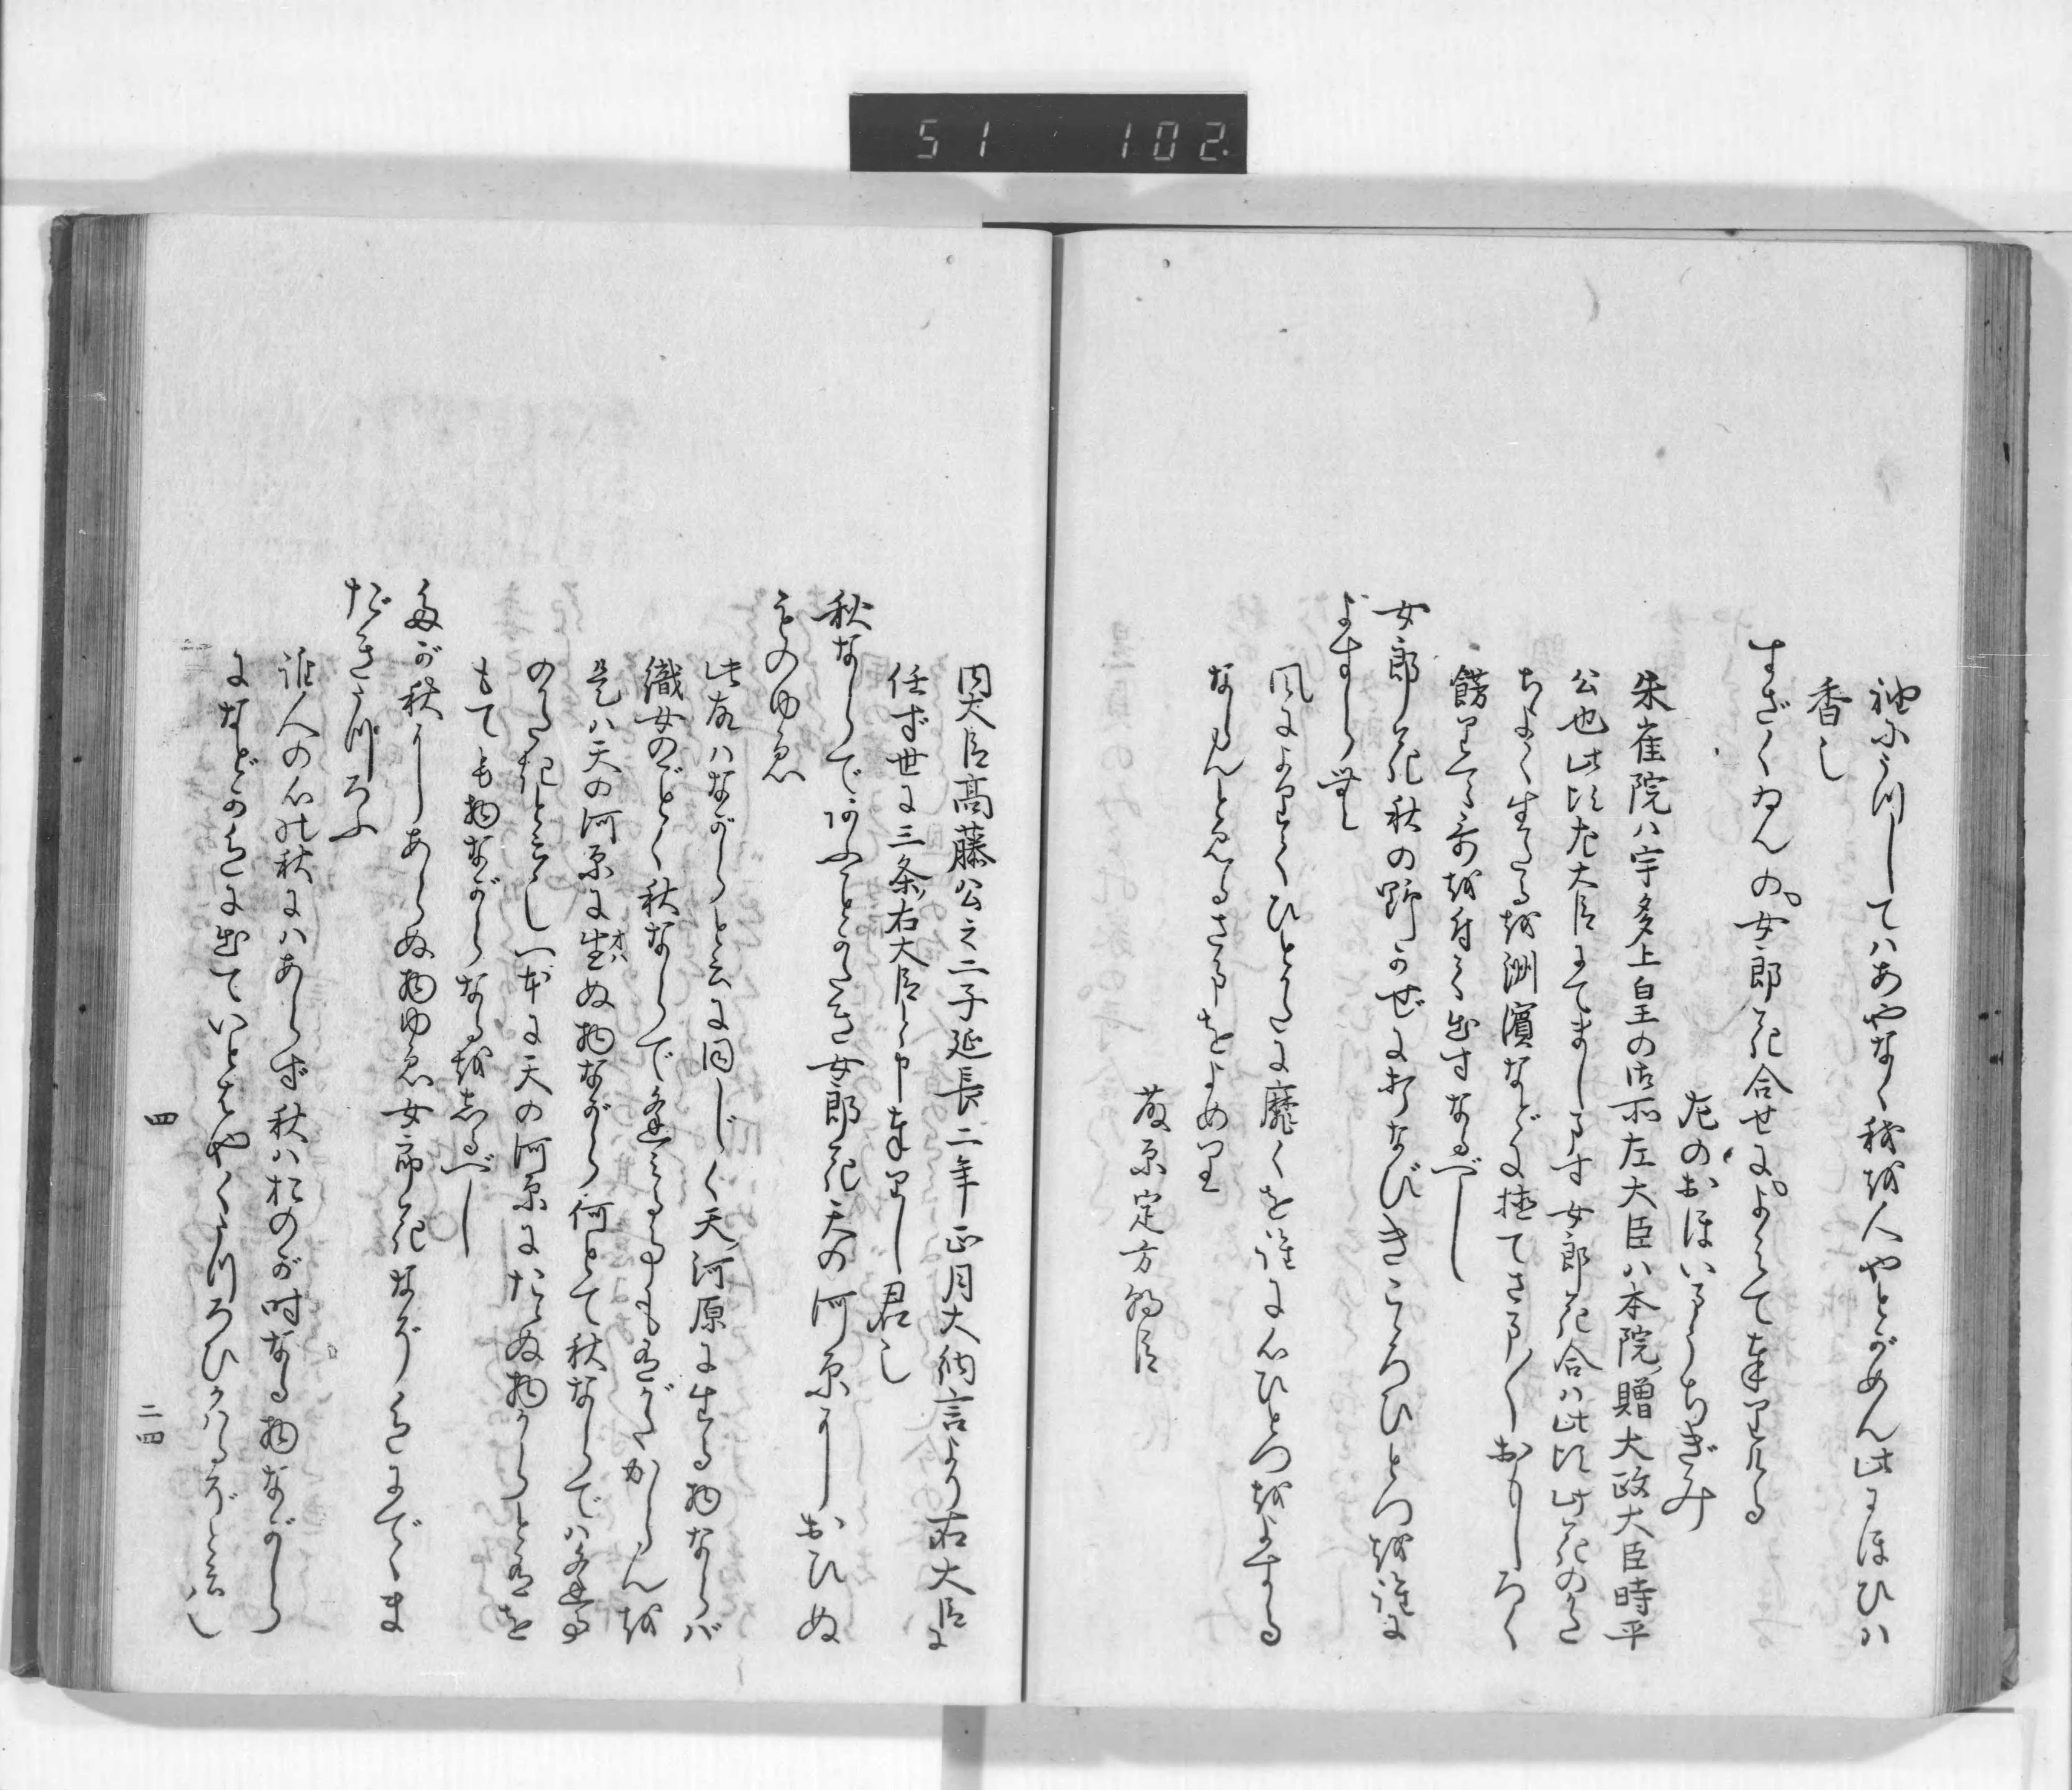 51 102.
袖にうつしてハあやなく我を人やとがめん此にほひハ
香し
すざくゐんの女郎花合せによみて奉りける
左のおほいまうちぎみ
朱雀院ハ宇多上皇の御所左大臣ハ本院贈大政大臣時平
公也此比左大臣にてまします女郎花合ハ此比此花のかた
ちよく生たるを洲濱などに植てさま〳〵おもしろく
餝りて歌を付て出すなるべし
女郎花秋の野かぜに打なびきこゝろひとつを誰に
よすらむ
風によりてひとかたに靡くを誰に心ひとつをよする
ならんとみるさまをよめり
藤原定方朝臣
内大臣高藤公之二子延長二年正月大納言より右大臣に
任ず世に三条右大臣と申奉りし君し
秋ならであふことかたき女郎花天の河原におひぬ
ものゆゑ
此歌ハながらと云に同じく天河原に生る物ならバ
織女のごとく秋ならで逢みる事もかたからんを
是ハ天の河原に生オハぬ物ながら何とて秋ならでハ逢事
のかたきと云し一本に天の河原にたらぬ物からと有を
もても物ながらなるを志るべし
たが秋にあらぬ物ゆゑ女郎花なぞ色にでゝま
だきうつろふ
誰人の心の秋にハあらず秋ハおのが時なる物ながら
になどか色に出ていとはやくうつろひけるぞと云し
四
二四